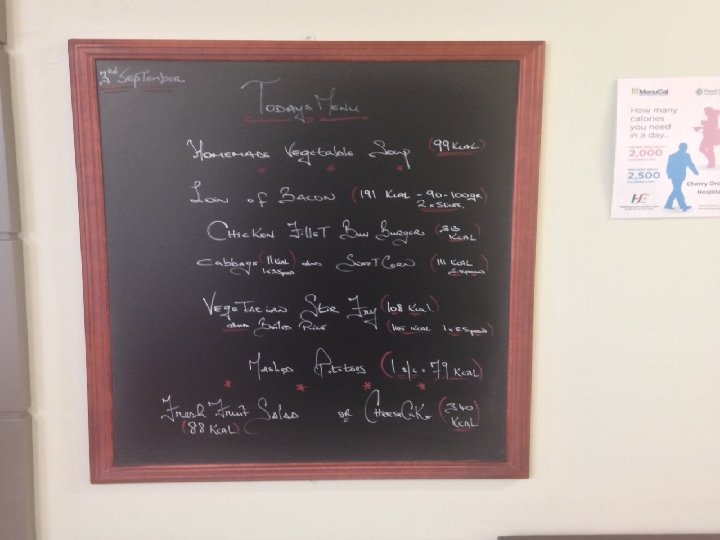 3rd September
Todays Menu
Homemade Vegetable Soup (99 Kcal)
Loin of Bacon (191 Kcal - 90-100gr
2 x Slices)
Chicken Fillet Bun Burger
Kcal)
Cabbage (11 Kcal and Sweet Corn (111 Kcal
Vegetarian Stir Fry (108 Kcal)
and Boiled Rice (165 Kcal
Mashed Potatoes (1 s/c = 79 Kcal)
Fresh Fruit Salad or CheeseCake (340
(88 Kcal) Kcal)
MenuCal
How many
calories
you need
in a day...
2,000
2,500
Cherry Orc
Hospita